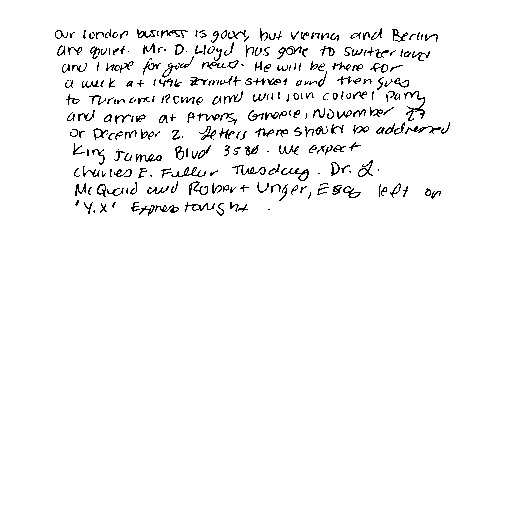 Our London business is good, but Vienna and Berlin
are quiet. Mr. D. Lloyd has gone to Switzerland
and I hope for good news. He will be there for
a week at 1496 Zermott street and then goes
to Turin and Rome and will join colonel Parry
and arrive at Athens, Greece, November 27
or December 2. Letters there should be addressed
King James Blvd 3580. We expect
Charles E. Fuller Tuesday. Dr. L.
McQuaid and Robert Unger, Esq, left on
"Y.X" Express tonight.